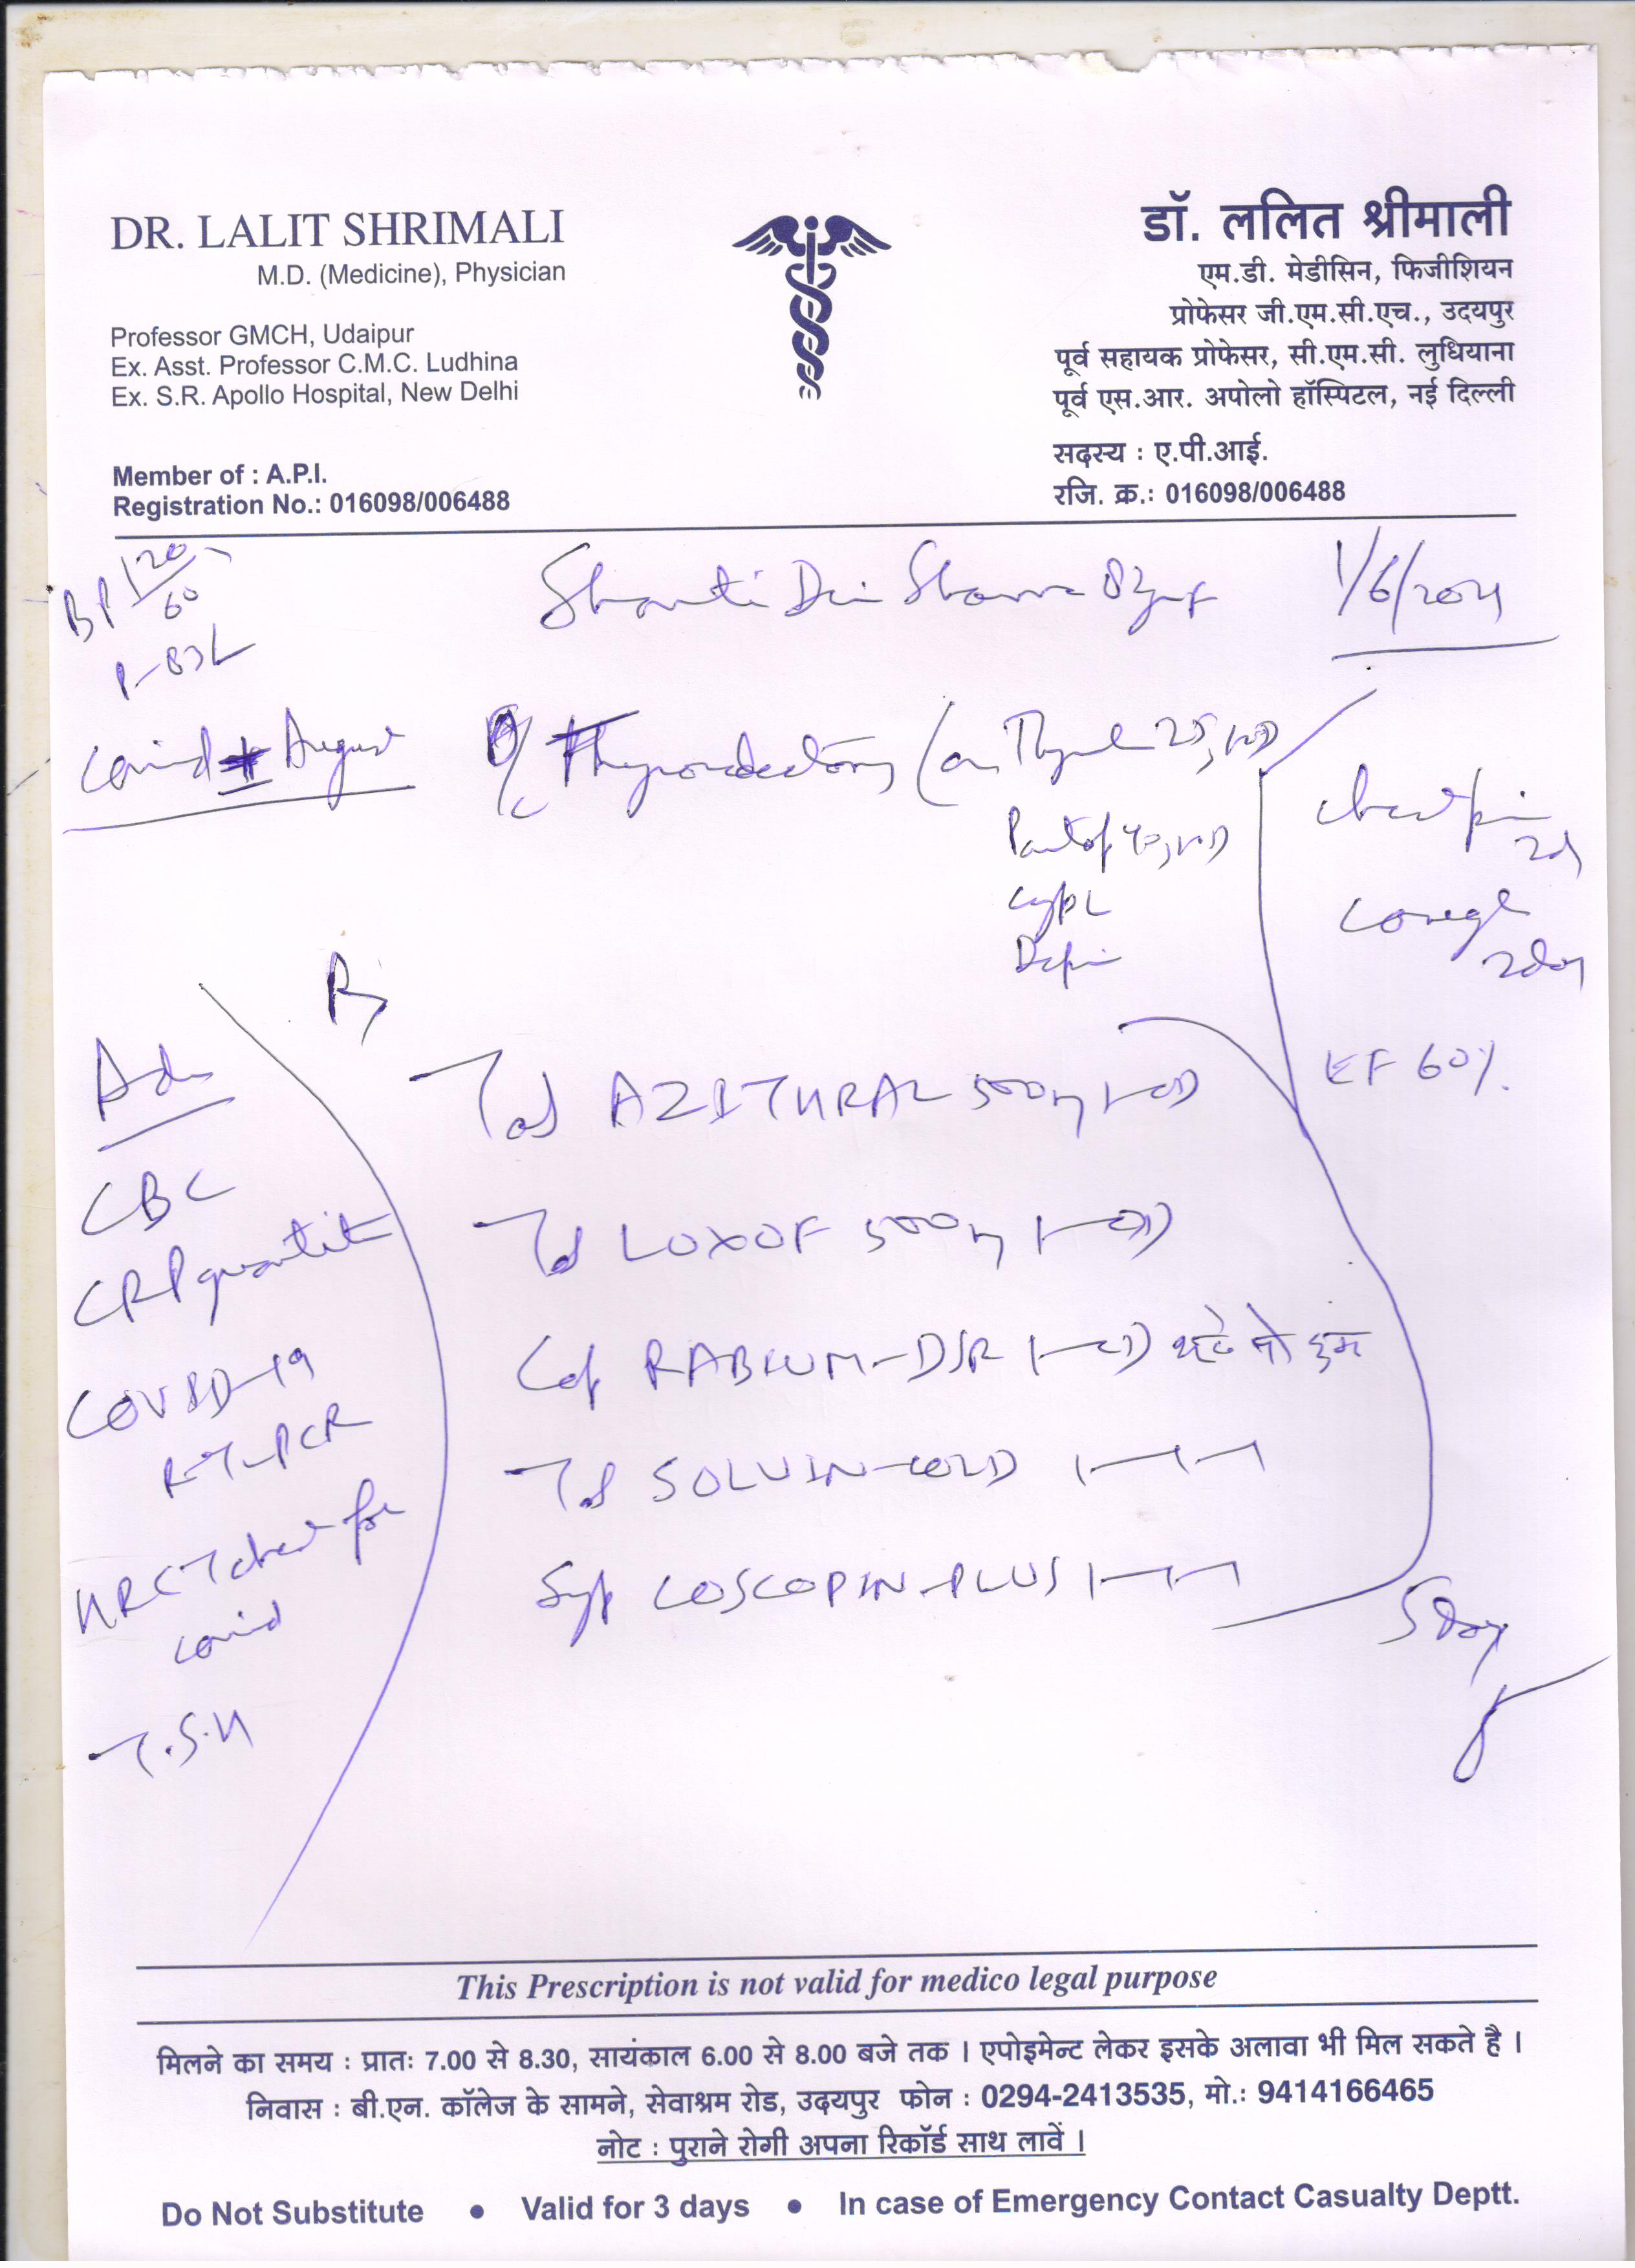 DR. LALIT SHRIMALI
M.D. (Medicine), Physician
Professor GMCH, Udaipur
Ex. Asst. Professor C.M.C. Ludhina
Ex. S.R. Apollo Hospital, New Delhi
Member of : A.P.I.
Registration No.: 016098/006488
डॉ. ललित श्रीमाली
एम.डी. मेडीसिन, फिजीशियन
प्रोफेसर जी.एम.सी.एच., उदयपुर
पूर्व सहायक प्रोफेसर, सी.एम.सी. लुधियाना
पूर्व एस.आर. अपोलो हॉस्पिटल, नई दिल्ली
सदस्य : ए.पी.आई.
रजि. क्र.: 016098/006488
BP 120/60
Shanti Devi Sharma
1/6/2021
Covid August
Thyroidectomy
25
EF 60%
Adv
CBC
CRP quantit
COVID-19
RT-PCR
HRCT chest for
covid
T.S.H
Tab AZITHRAL 500mg 1-OD
Tab LOXOF 500mg 1-OD
Cap RABIUM-DSR 1-OD
Tab SOLVIN-COLD 1-1-1
Syp COSCOPIN-PLUS 1-1-1
5 day
This Prescription is not valid for medico legal purpose
मिलने का समय : प्रातः 7.00 से 8.30, सायंकाल 6.00 से 8.00 बजे तक । एपोइमेन्ट लेकर इसके अलावा भी मिल सकते है ।
निवास : बी.एन. कॉलेज के सामने, सेवाश्रम रोड, उदयपुर फोन : 0294-2413535, मो.: 9414166465
नोट : पुराने रोगी अपना रिकॉर्ड साथ लावें ।
Do Not Substitute • Valid for 3 days • In case of Emergency Contact Casualty Deptt.